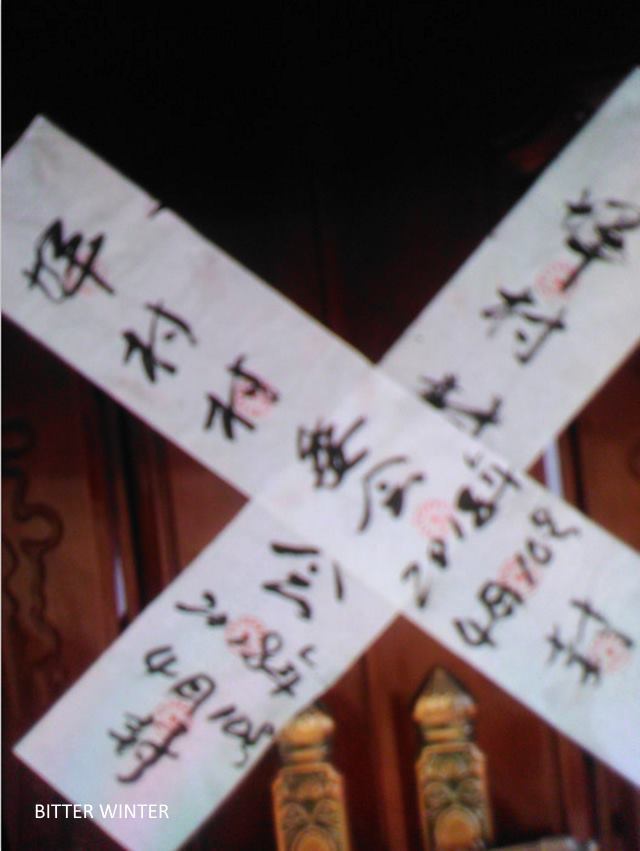 村村委会2018年4月10号封
村村会2018年4月10号封
BITTER WINTER